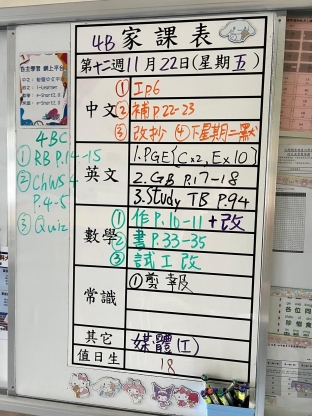 4B 家課表
第十二週11月22日(星期五)
自主學習 網上平台
中文
① Ip6
② 補p.22-23
③ 改抄 ④下星期二默
英文
1. PGE{C×2, E×10}
2. GB P.17-18
3. Study TB P.94
數學
① 作P.10-11+改
② 書P.33-35
③ 試工改
常識
①剪報
其它
媒體(工)
值日生
18
4BC
① RB P.14-15
② ChWS4
P.4-5
③ Quiz